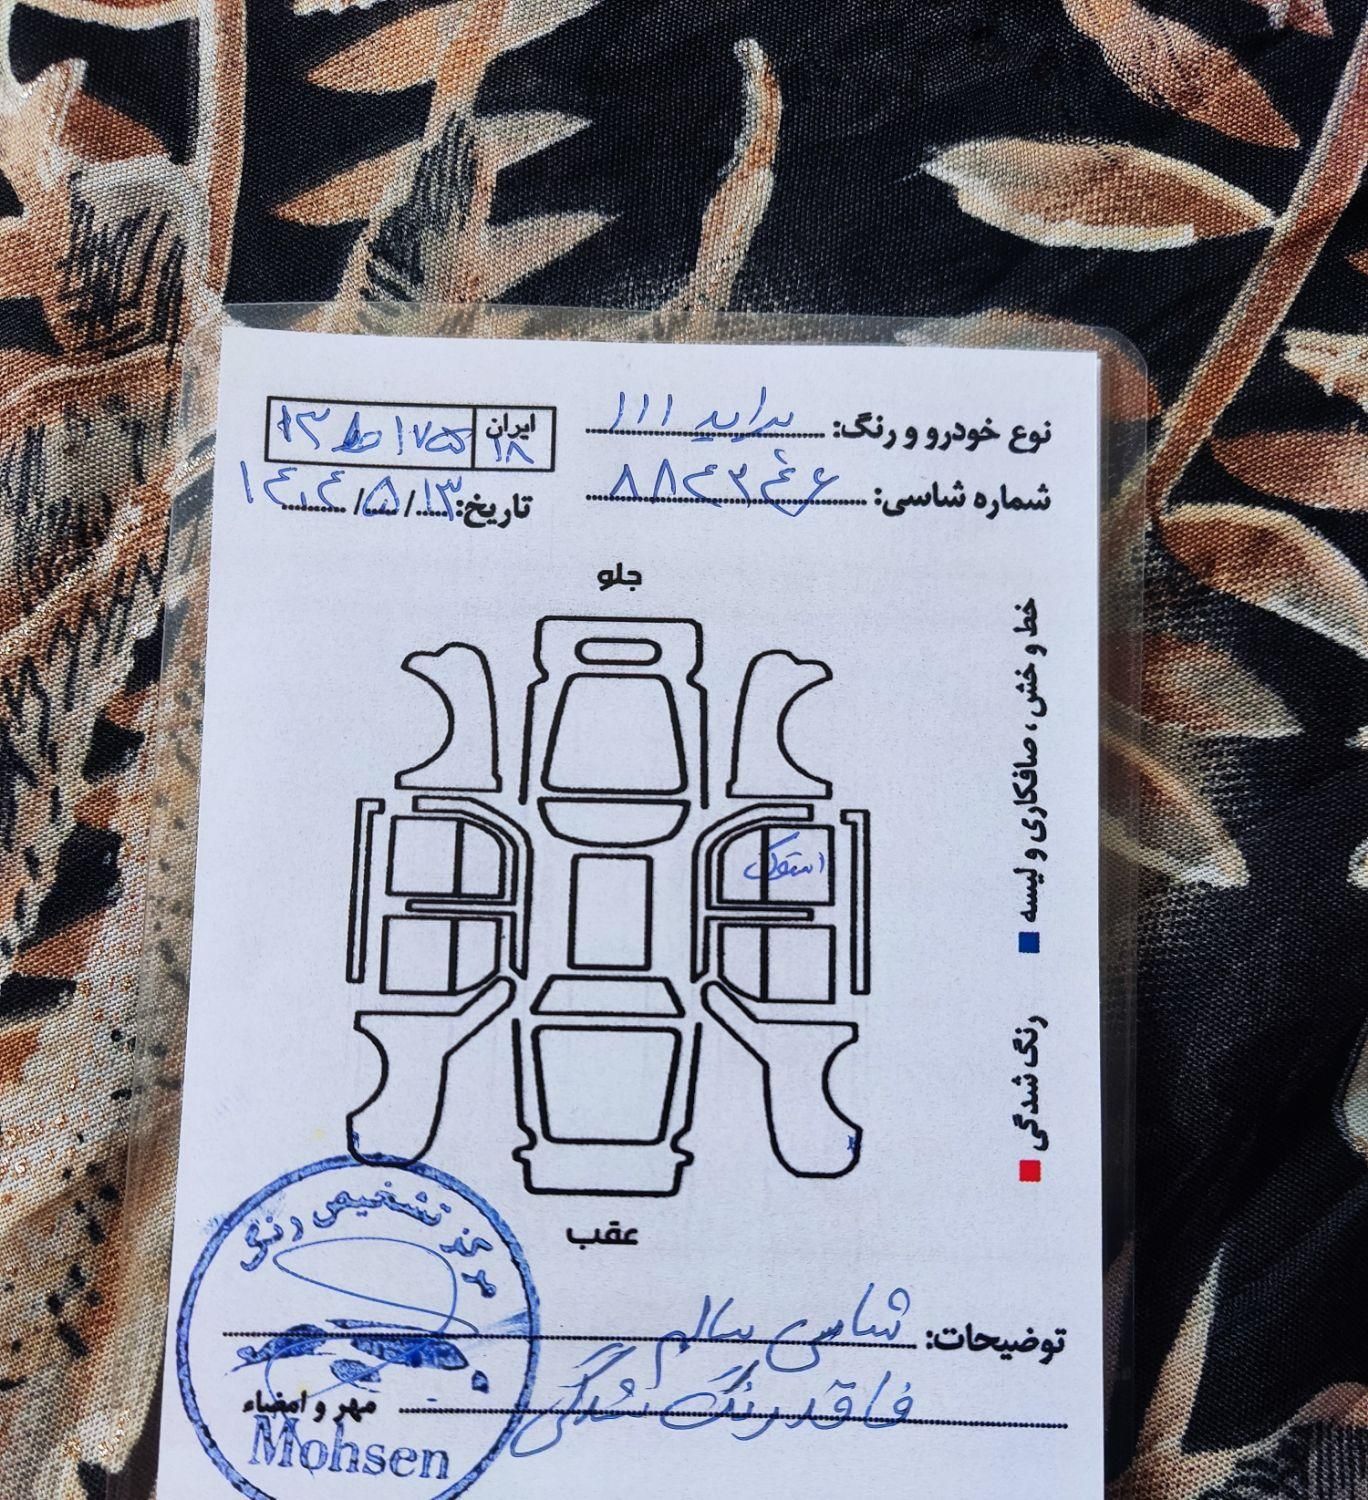 نوع خودرو و رنگ: پراید ۱۱۱
ایران ۱۸
شماره شاسی:
تاریخ: ۱۳/ ۵/ ۱۴۰۴
جلو
خط و خش ، صافکاری و لیسه
استوک
رنگ شدگی
عقب
مرکز تشخیص رنگ
توضیحات: شاسی سالم
فاقد رنگ شدگی
مهر و امضاء
Mohsen